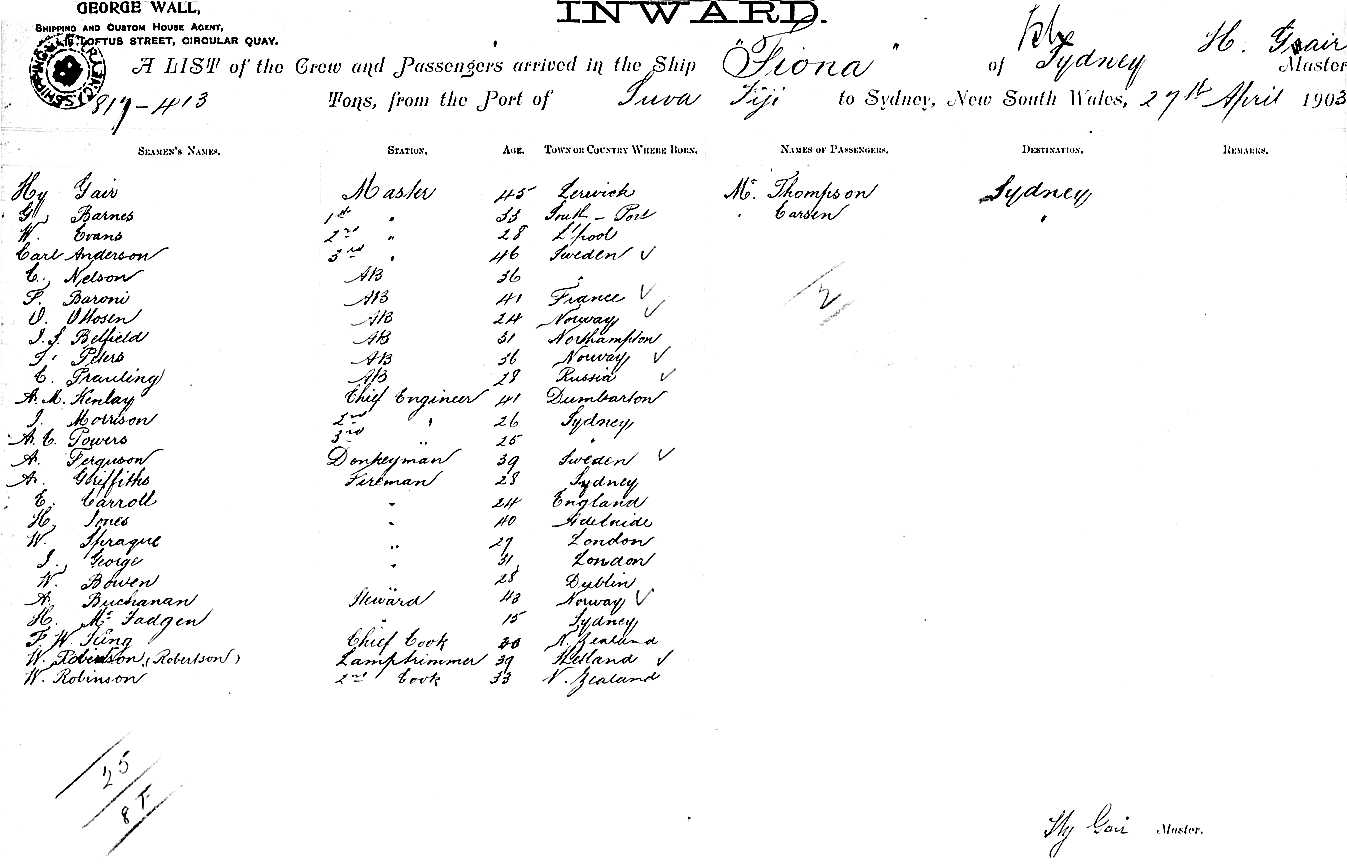 GEORGE WALL,
SHIPPING AND CUSTOM HOUSE AGENT,
LOFTUS STREET, CIRCULAR QUAY.
INWARD.
A LIST of the Crew and Passengers arrived in the Ship "Fiona" of Sydney H. Gair Master
817-413 Tons, from the Port of Suva Fiji to Sydney, New South Wales, 27th April 1903
SEAMEN'S NAMES. STATION. AGE. TOWN OR COUNTRY WHERE BORN. NAMES OF PASSENGERS. DESTINATION. REMARKS.
Hy Gair Master 45 Lerwick Mr Thompson Sydney
G. Barnes 1st " 33 South-Port " Carsen "
W. Evans 2nd " 28 L'pool
Carl Anderson 3rd " 46 Sweden ✓
C. Nelson AB 36 "
F. Baroni AB 41 France ✓
O. Ottosen AB 24 Norway ✓
J. J. Belfield AB 31 Northampton
Peters AB 36 Norway ✓
C. Prauling AB 28 Russia ✓
A. M. Kenlay Chief Engineer 41 Dumbarton
J. Morrison 2nd " 26 Sydney
A. C. Powers 3rd " 25 "
A. Ferguson Donkeyman 39 Sweden ✓
A. Griffiths Fireman 28 Sydney
E. Carroll " 24 England
H. Jones " 40 Adelaide
W. Sprague " 27 London
J. George " 31 London
W. Bowen " 28 Dublin
A. Buchanan Steward 43 Norway ✓
H. Mc Fadgen " 15 Sydney
F. W. Tung Chief Cook N. Zealand
W. Robinson (Robertson) Lamptrimmer 39 ✓
W. Robinson 2nd Cook 33 N. Zealand
2
25
8 F
Hy Gair Master.